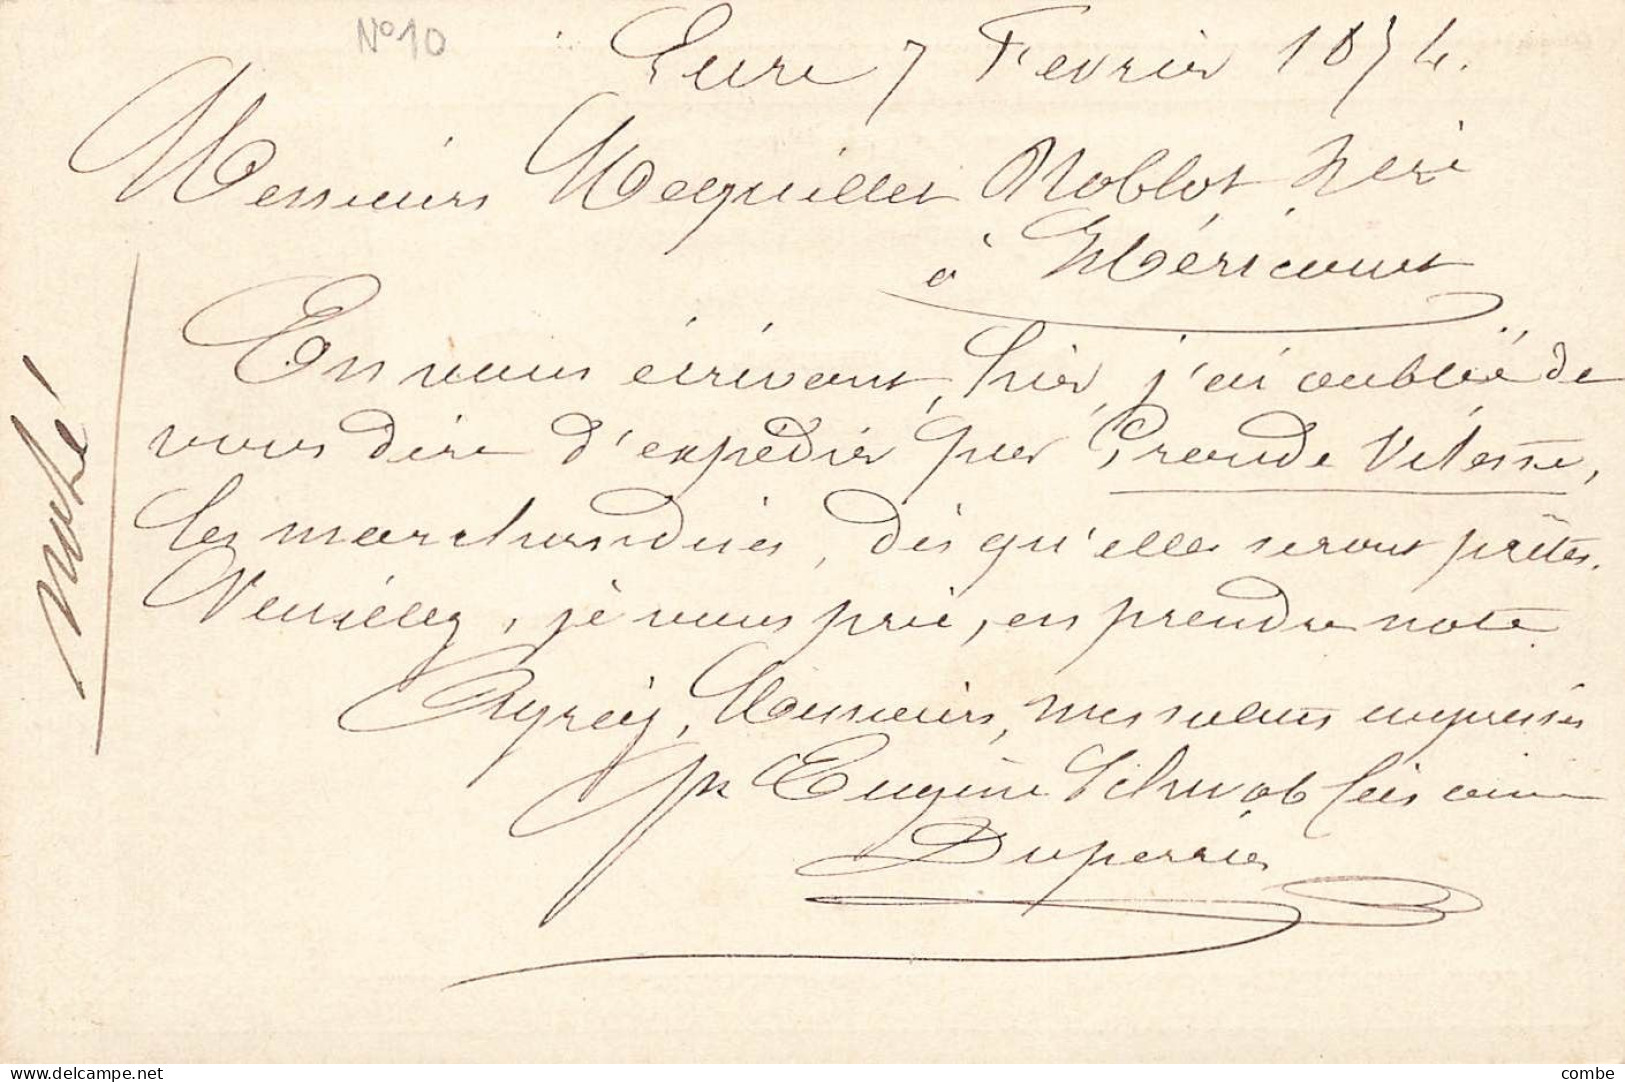 N° 10
Lure 7 Fevrier 1874.
Messieurs Mequillet Noblot,
à Héricourt
En vous écrivant, hier, j'ai oublié de
vous dire d'expédier par Grande Vitesse,
les marchandises, dès qu'elles seront prêtes.
Veuillez, je vous prie, en prendre note
Agréez, Messieurs, mes saluts empressés
Pr Eugène Schwob fils ainé
Duperrier
Noté
www.delcampe.net
combe